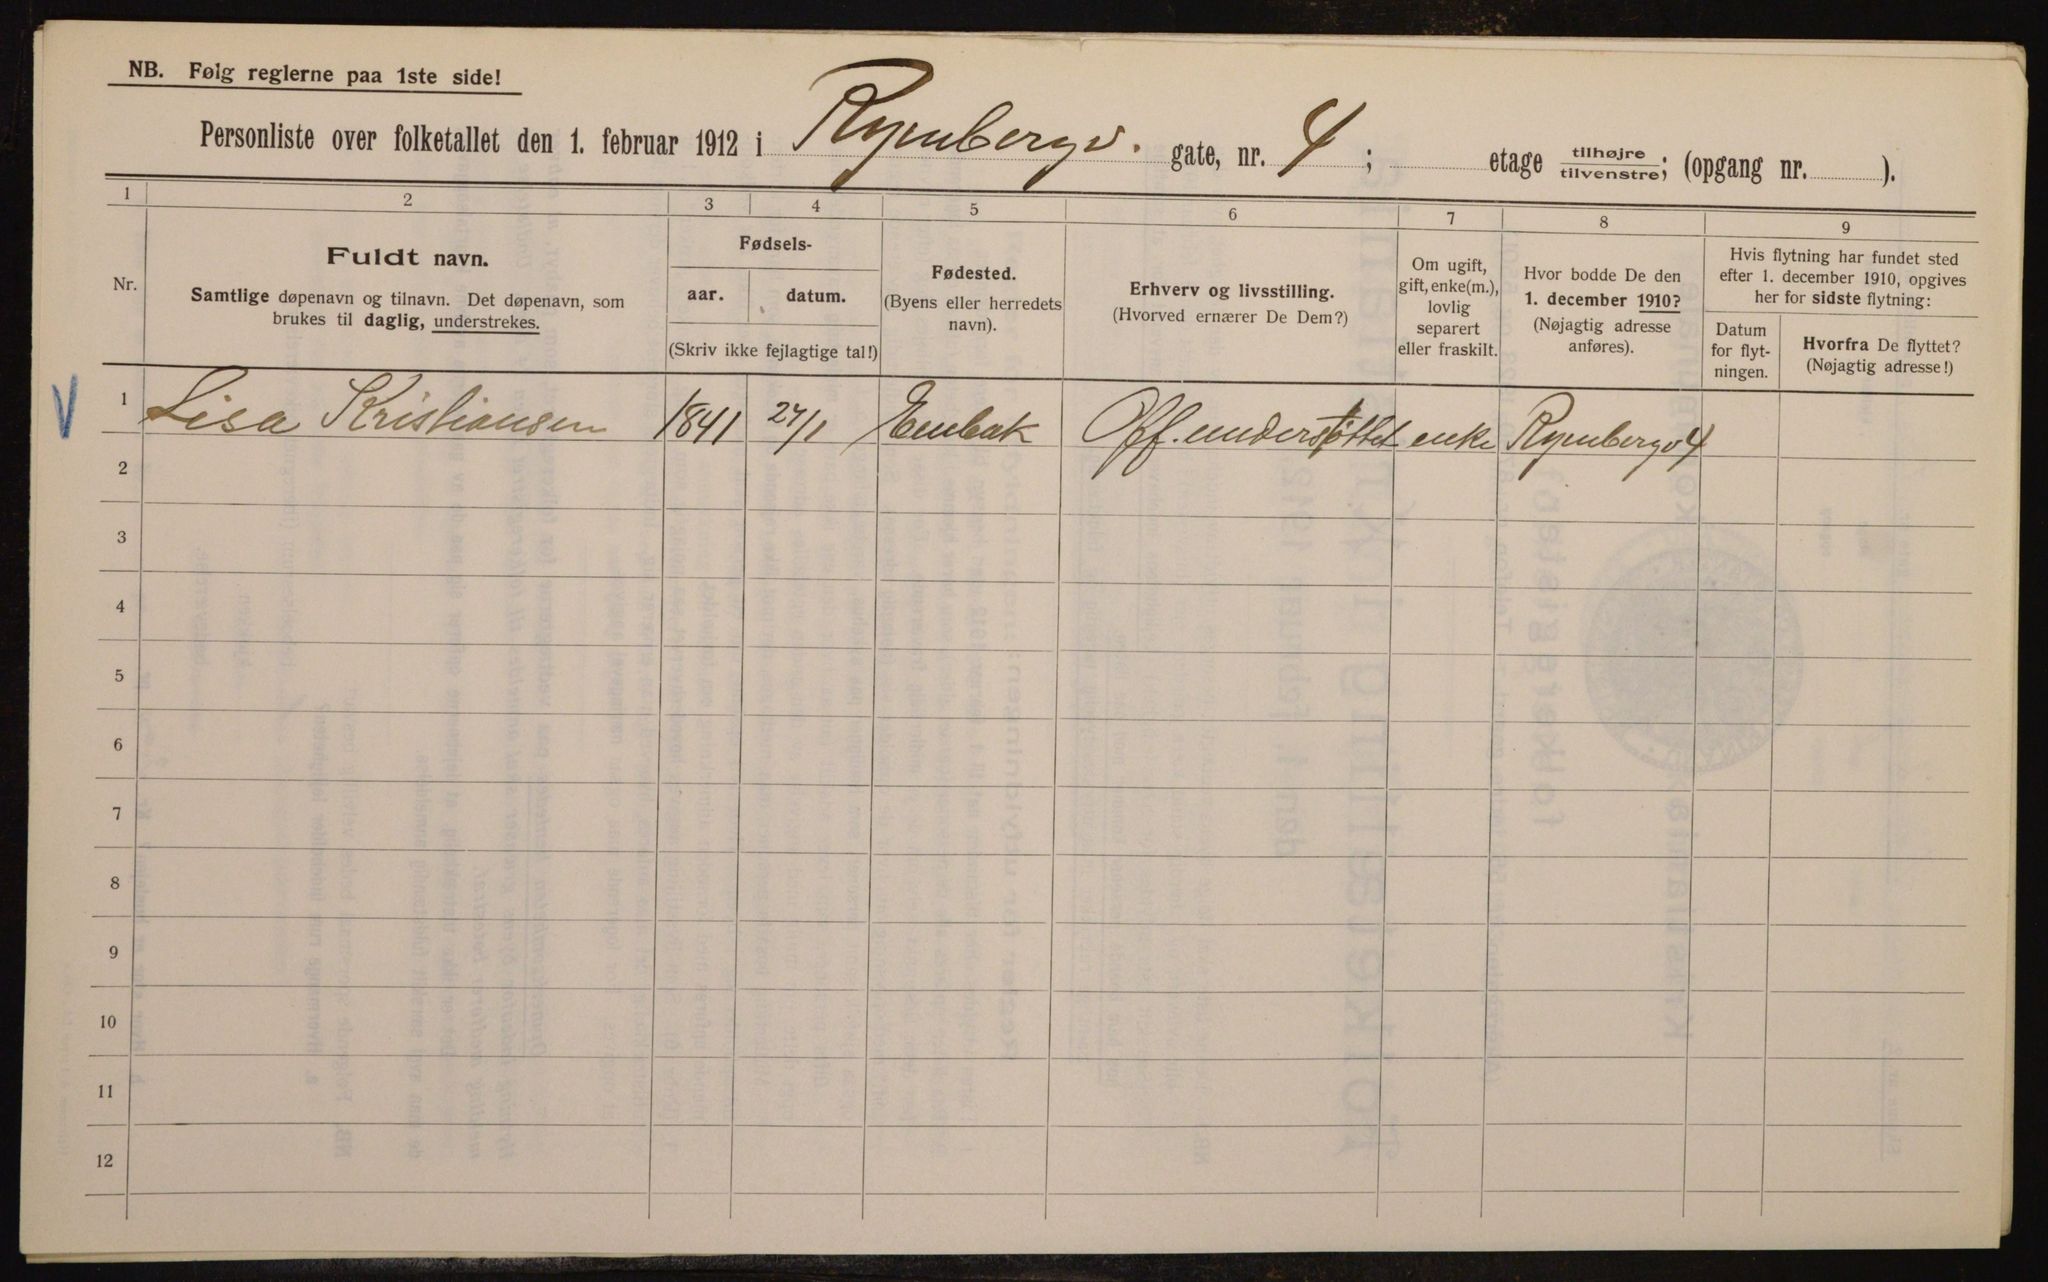 NB. Følg reglerne paa 1ste side!
Personliste over folketallet den 1. februar 1912 i Rynbergv. gate, nr. 4; etage tilhøjre tilvenstre; (opgang nr. ).
1 2 3 4 5 6 7 8 9
Nr.
Fuldt navn.
Samtlige døpenavn og tilnavn. Det døpenavn, som
brukes til daglig, understrekes.
Fødsels-
aar. datum.
(Skriv ikke fejlagtige tal!)
Fødested.
(Byens eller herredets
navn).
Erhverv og livsstilling.
(Hvorved ernærer De Dem?)
Om ugift,
gift, enke(m.),
lovlig
separert
eller fraskilt.
Hvor bodde De den
1. december 1910?
(Nøjagtig adresse
anføres).
Hvis flytning har fundet sted
efter 1. december 1910, opgives
her for sidste flytning:
Datum
for flyt-
ningen.
Hvorfra De flyttet?
(Nøjagtig adresse!)
1 Lisa Kristiansen 1841 27/1 Enebak Off. understøttet enke Rynbergv 4
2
3
4
5
6
7
8
9
10
11
12